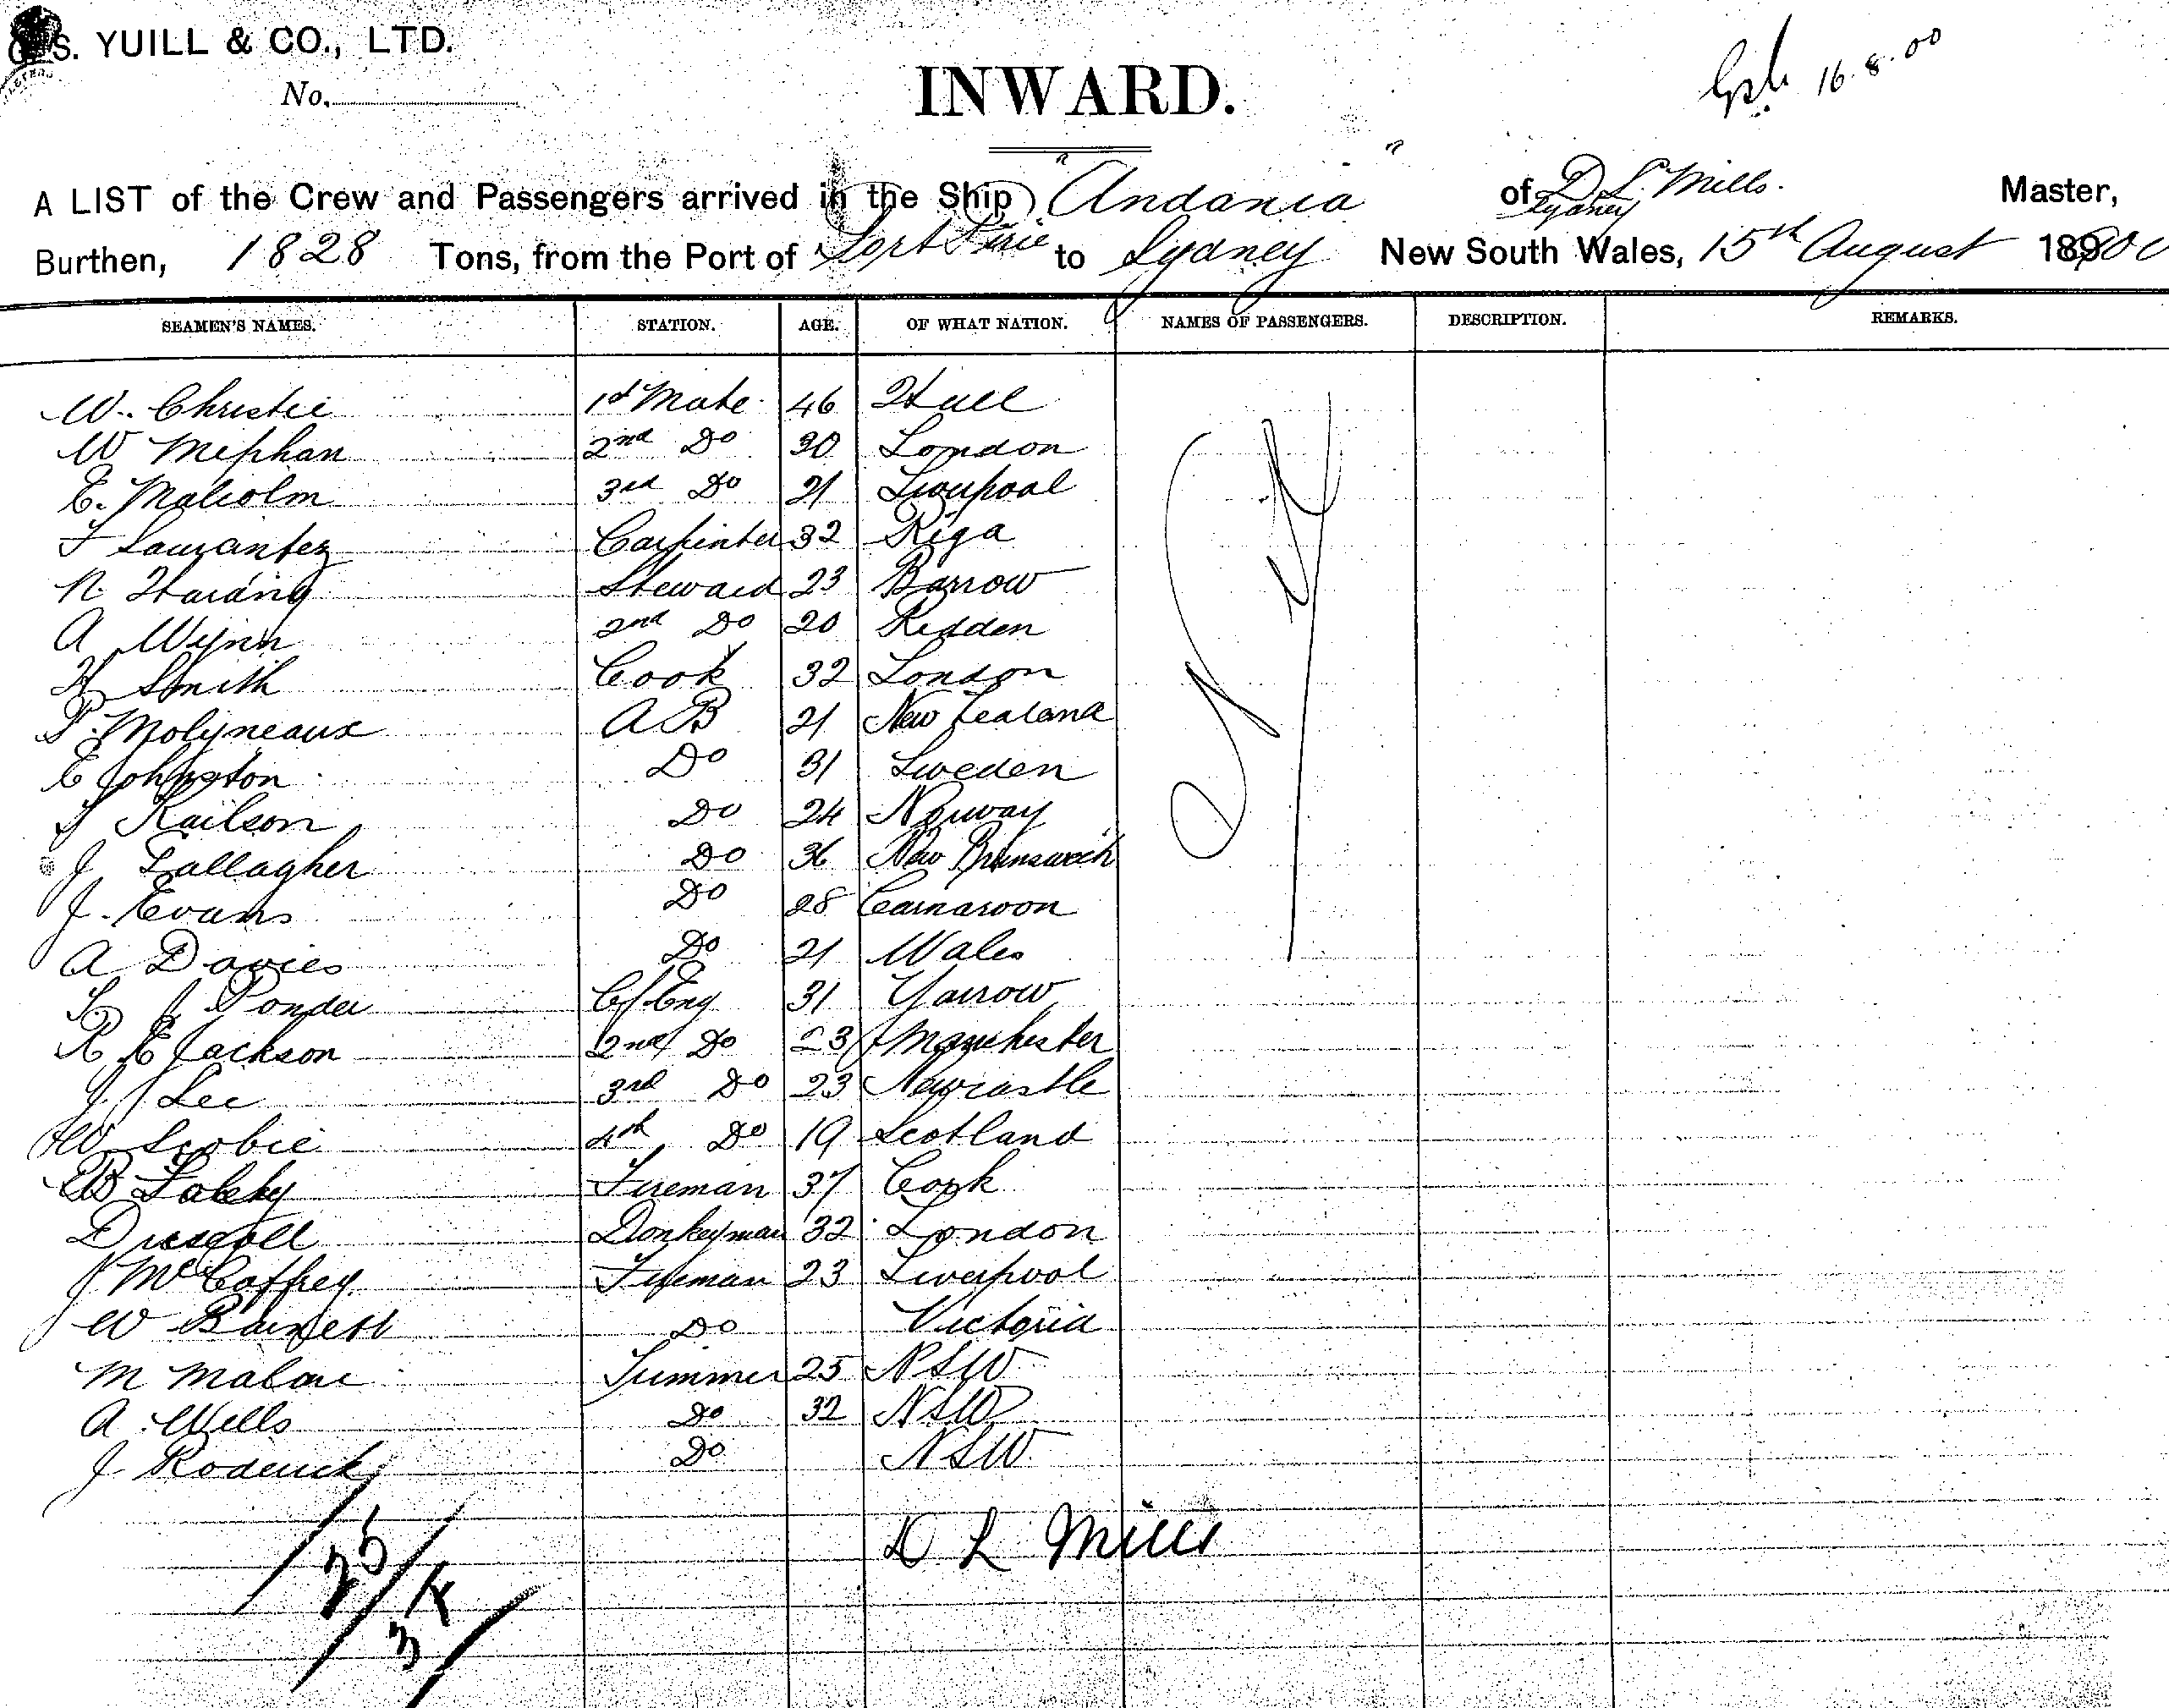 S. YUILL & CO., LTD.
No.
INWARD.
16.8.00
A LIST of the Crew and Passengers arrived in the Ship Andania of D L Mills. Master,
Sydney
Burthen, 1828 Tons, from the Port of Port Pirie to Sydney New South Wales, 15th August 1900
SEAMEN'S NAMES. STATION. AGE. OF WHAT NATION. NAMES OF PASSENGERS. DESCRIPTION. REMARKS.
W. Christie 1st Mate 46 Hull
W Mephan 2nd Do 30 London
E. Malcolm 3rd Do 21 Liverpool
Carpinter 32 Riga
N. Harding Steward 23 Barrow
A Wynn 2nd Do 20
H Smith Cook 32 London
P. Molyneaux AB 21 New Zealand
E Johnston Do 31 Sweden
Do 24 Norway
J Gallagher Do 36 New Brunswick
J. Evans Do 28 Carnarvon
A Davies Do 21 Wales
J Ponder Cf Eng 31 Yarrow
R E Jackson 2nd Do 23 Manchester
J Lee 3rd Do 23 Newcastle
W Scobie 4th Do 19 Scotland
B Fireman 37 Cork
Driscoll Donkeyman 32 London
J McCaffrey Fireman 23 Liverpool
W Do Victoria
M Malone Trimmer 25 NSW
A Wells Do 32 NSW
J. Roderick Do NSW
D L Mills
25